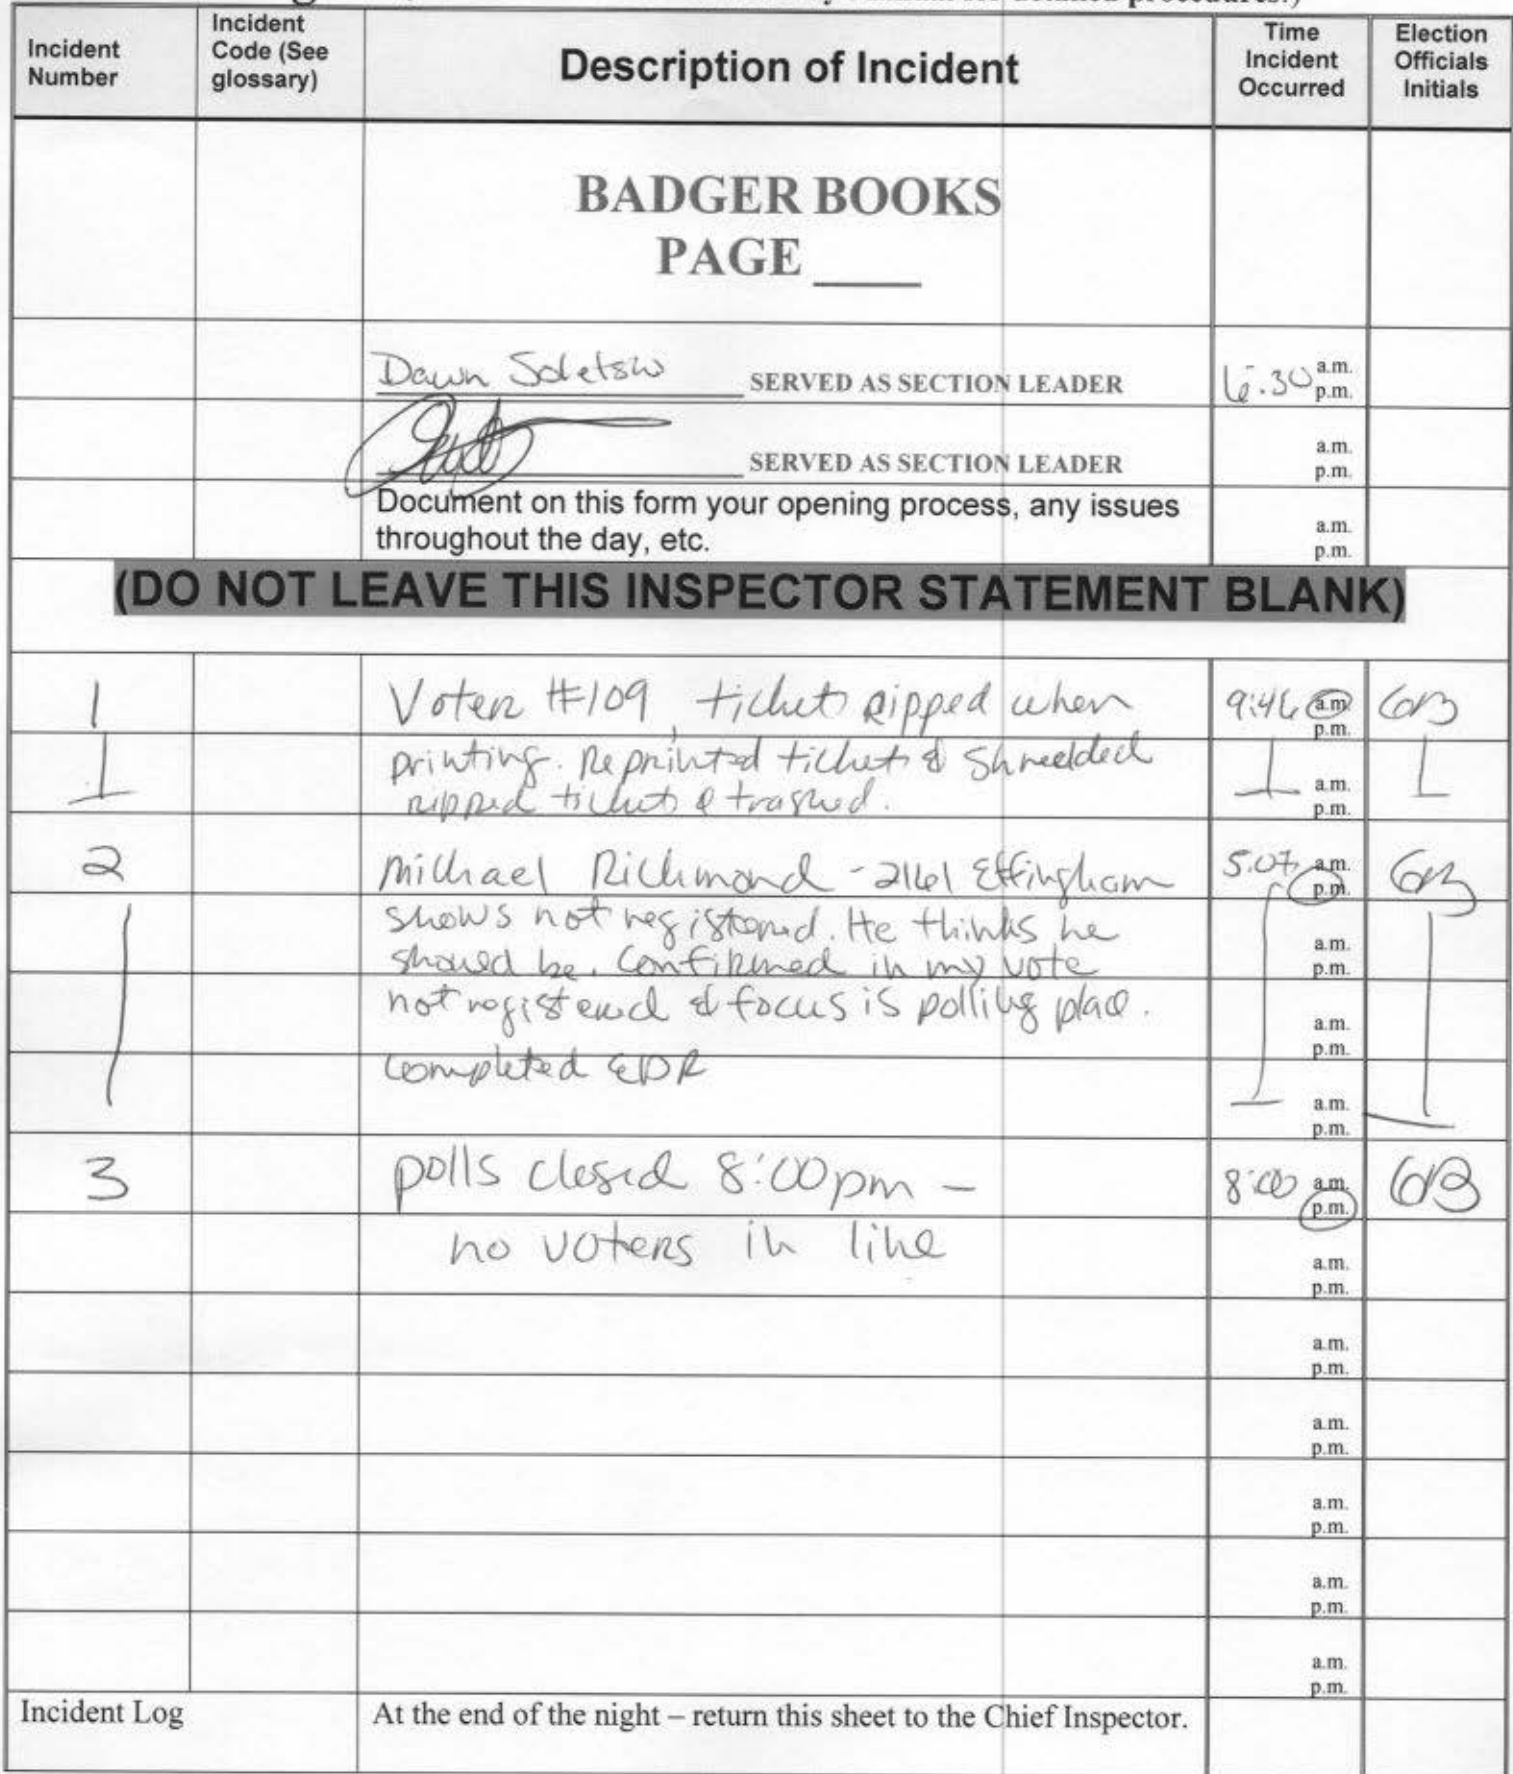 detailed procedures.)
Incident Number
Incident Code (See glossary)
Description of Incident
Time Incident Occurred
Election Officials Initials
BADGER BOOKS
PAGE ____
Dawn SERVED AS SECTION LEADER 6:30 a.m. p.m.
SERVED AS SECTION LEADER a.m. p.m.
Document on this form your opening process, any issues a.m.
throughout the day, etc. p.m.
(DO NOT LEAVE THIS INSPECTOR STATEMENT BLANK)
1 Voter #109, ticket ripped when 9:46 a.m. p.m. GB
printing. Reprinted ticket & shredded a.m.
ripped ticket & trashed. p.m.
2 Michael Richmond - 2161 Effingham 5:07 a.m. p.m. GB
shows not registered. He thinks he a.m.
should be. Confirmed in my vote p.m.
not registered & focus is polling place. a.m. p.m.
completed EDR a.m. p.m.
3 polls closed 8:00pm - 8:00 a.m. p.m. GB
no voters in line a.m. p.m.
a.m. p.m.
a.m. p.m.
a.m. p.m.
a.m. p.m.
a.m. p.m.
Incident Log At the end of the night – return this sheet to the Chief Inspector.